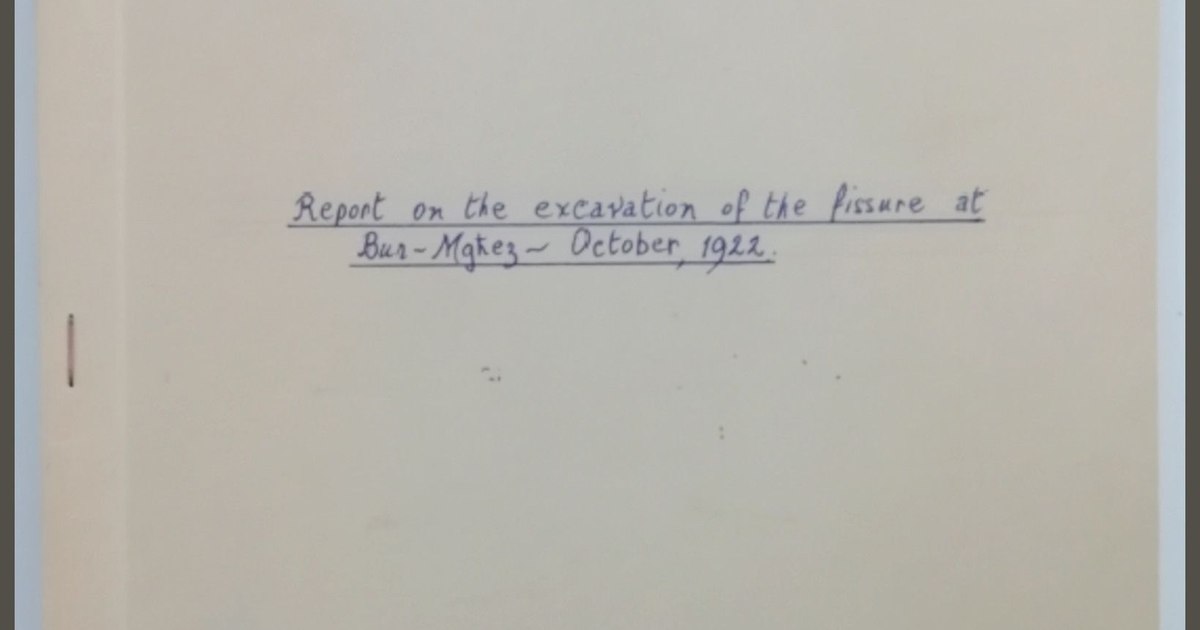 Report on the excavation of the fissure at
Bur-Mgħez ~ October, 1922.